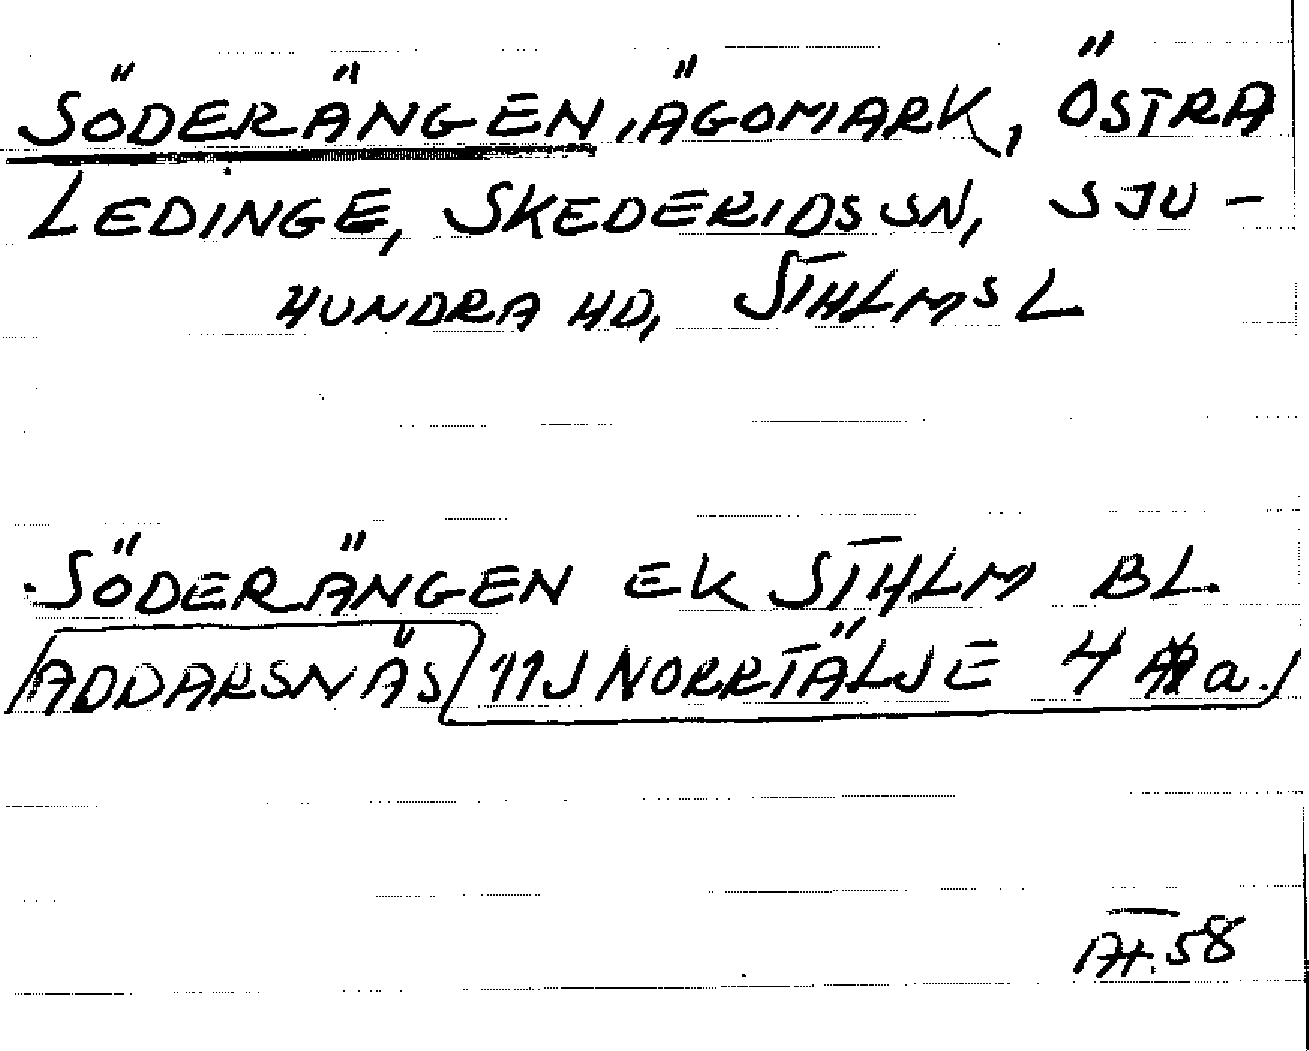 SÖDERÄNGEN, ÄGOMARK, ÖSTRA
LEDINGE, SKEDERIDS SN, SJU-
HUNDRA HD, STHLMS L
SÖDERÄNGEN EK STHLM BL.
ADDARSNÄS 11J NORRTÄLJE 4 a.
58